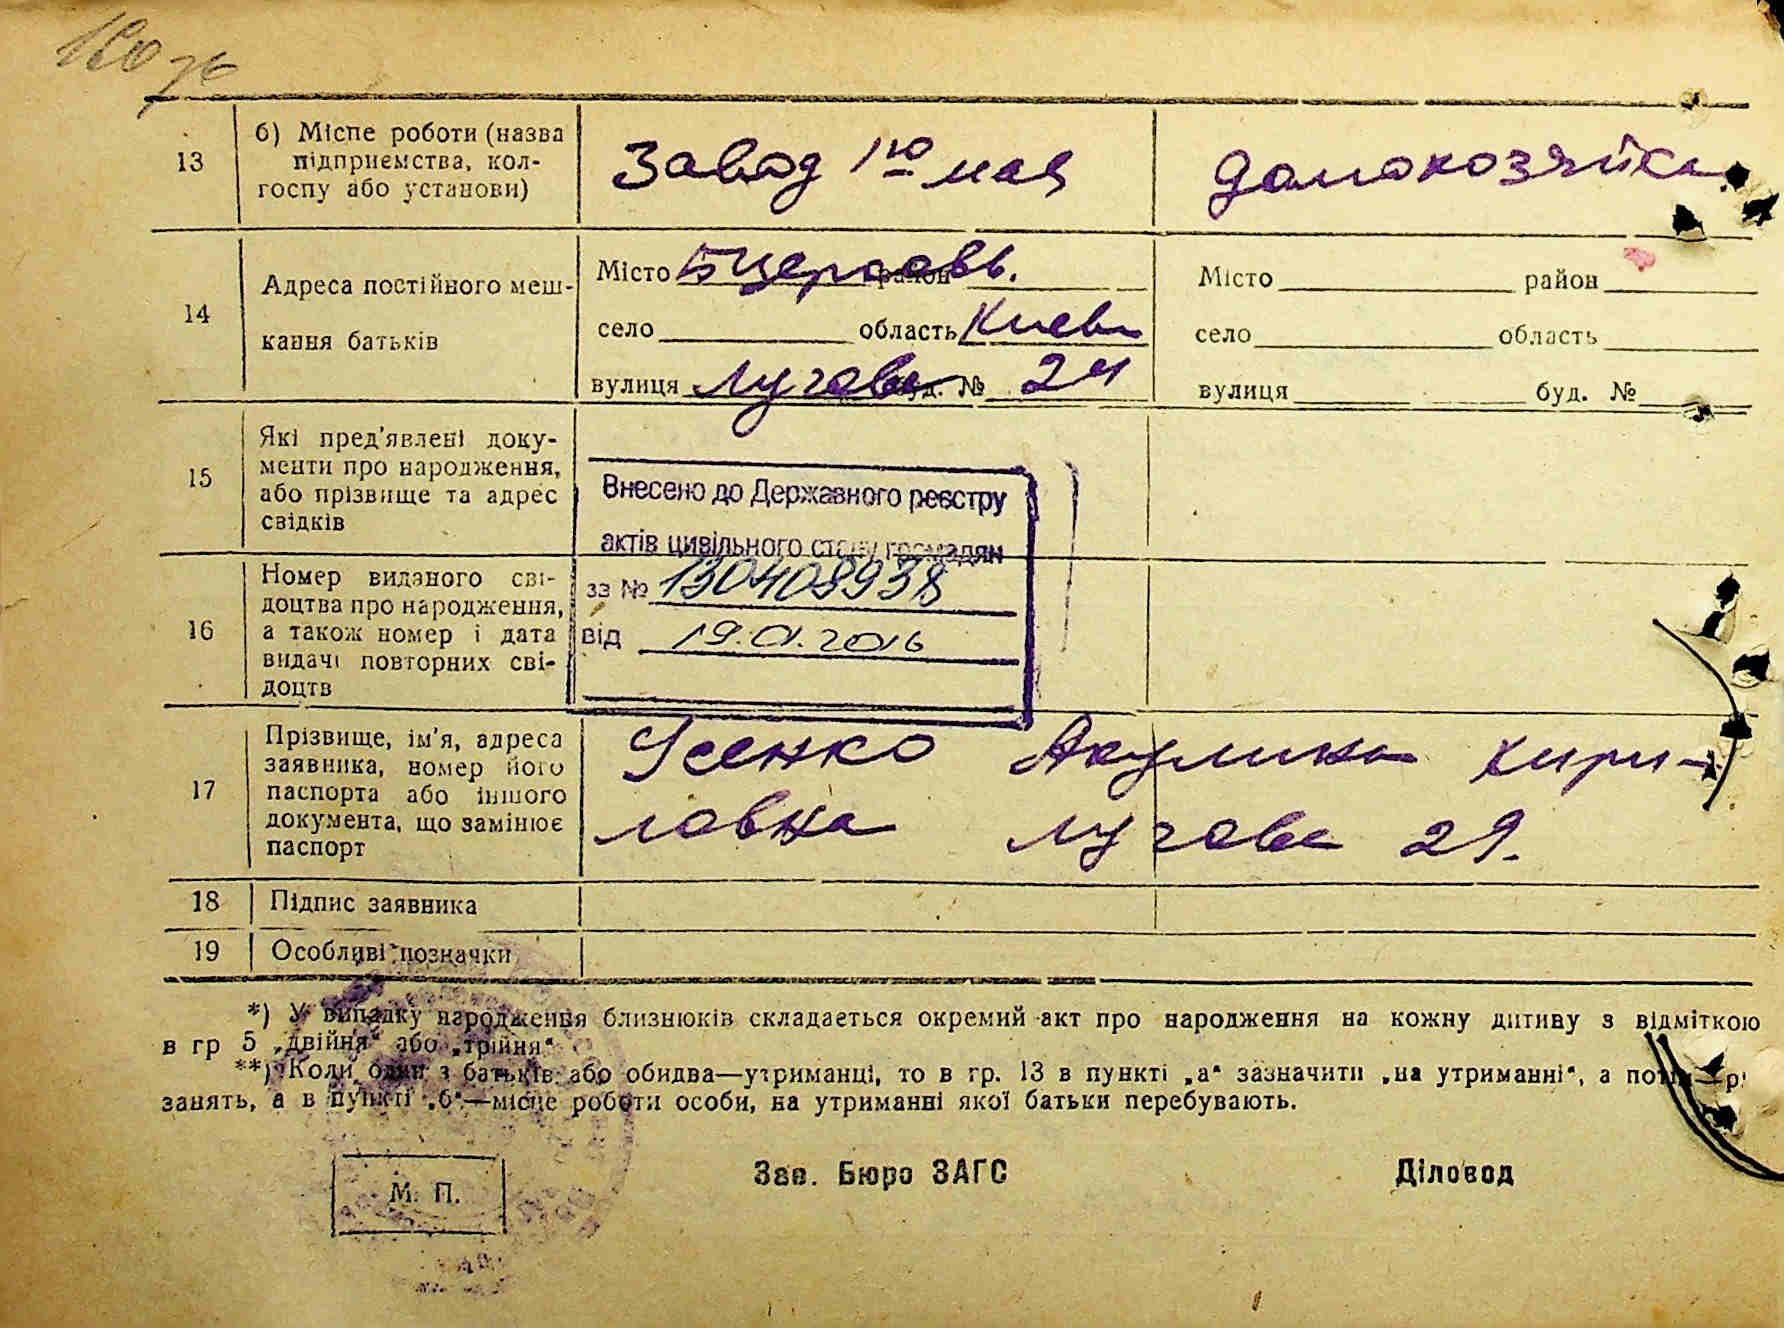 180 ж
13
б) Місце роботи (назва
підприємства, кол-
госпу або установи)
Завод 1го мая
домохозяйка.
14
Адреса постійного меш-
кання батьків
Місто Бцерковь. район
село область Киев
вулиця Лугова буд. № 24
Місто район
село область
вулиця буд. №
15
Які пред'явлені доку-
менти про народження,
або прізвище та адрес
свідків
Внесено до Державного реєстру
актів цивільного стану громадян
за № 130408938
від 19.01.2016
16
Номер виданого сві-
доцтва про народження,
а також номер і дата
видачі повторних сві-
доцтв
17
Прізвище, ім'я, адреса
заявника, номер його
паспорта або іншого
документа, що замінює
паспорт
Усенко Акулина Кири-
ловна Лугова 29.
18 Підпис заявника
19 Особливі позначки
*) У випадку народження близнюків складається окремий акт про народження на кожну дитину з відміткою
в гр 5 „двійня“ або „трійня“
**) Коли один з батьків або обидва—утриманці, то в гр. 13 в пункті „а“ зазначити „на утриманні“, а потім—р
занять, а в пункті „б“—місце роботи особи, на утриманні якої батьки перебувають.
М. П.
Зав. Бюро ЗАГС
Діловод